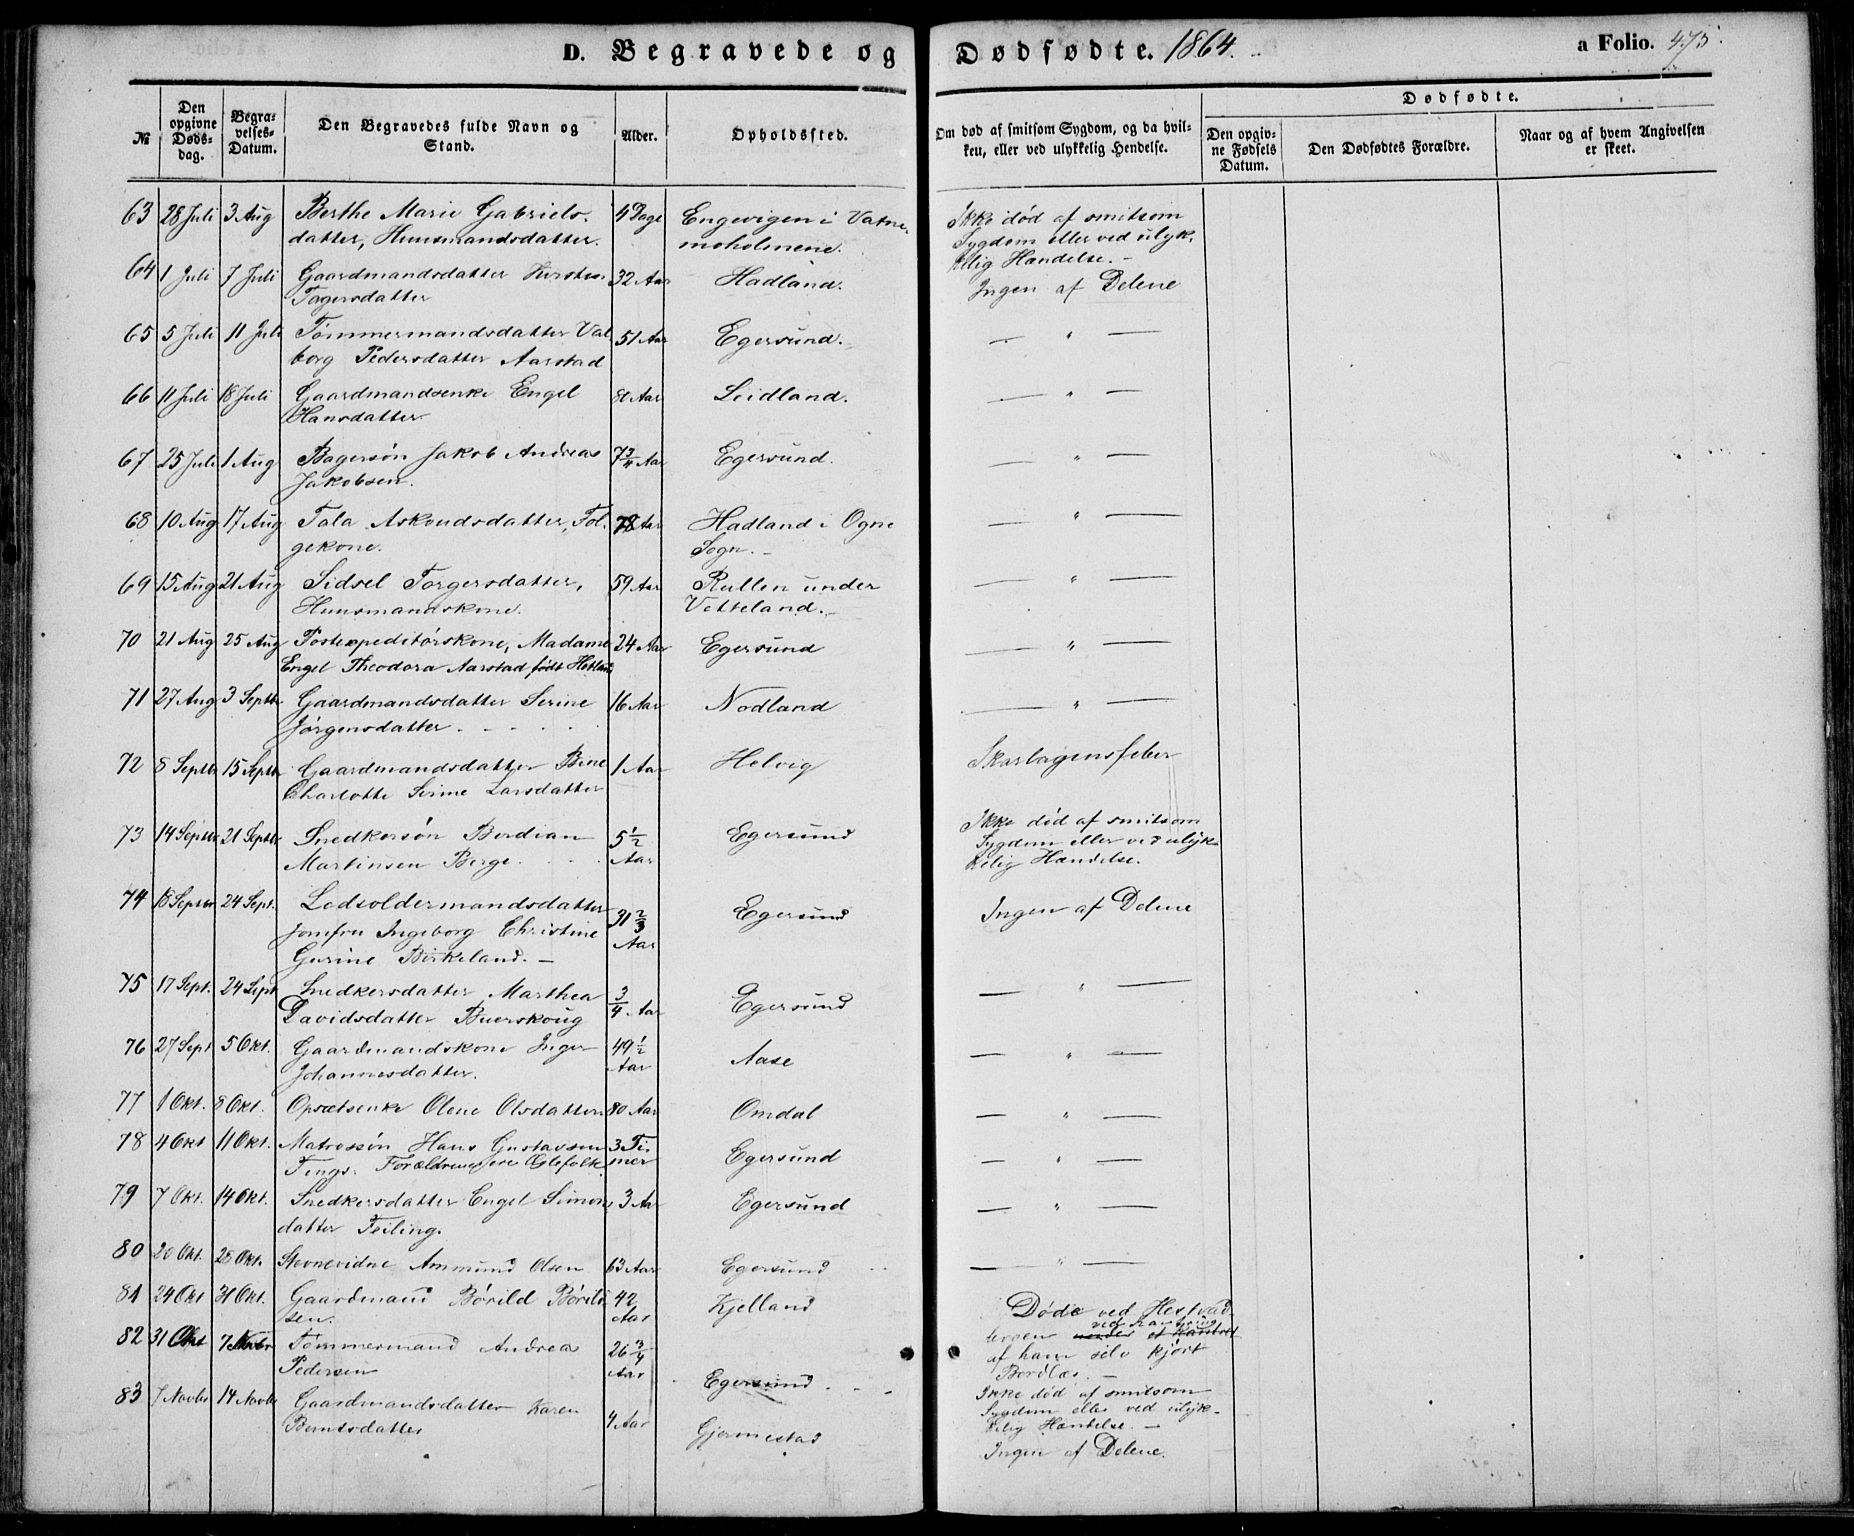 D. Begravede og Dødfødte. 1864. a Folio. 475.
№ Den opgivne Dødsdag. Begravelses-Datum. Den Begravedes fulde Navn og Stand. Alder. Opholdssted. Om død af smitsom Sygdom, og da hvilken, eller ved ulykkelig Hendelse. Dødfødte. Den opgivne Fødsels Datum. Den Dødfødtes Forældre. Naar og af hvem Angivelsen er skeet.
63 28 Juli 3 Aug Berthe Marie Gabriels- 4 Dage Engevigen i Vatne- Ikke død af smitsom
datter, Huusmandsdatter. moholmene. Sygdom eller ved ulyk-
kelig Hændelse. –
64 1 Juli 7 Juli Gaardmandsdatter Kirsten 32 Aar Hadland. Ingen af Delene
Tagersdatter
65 5 Juli 11 Juli Tømmermandsdatter Val 51 Aar Egersund. — " —
borg Pedersdatter Aarstad
66 11 Juli 18 Juli Gaardmandsenke Engel 80 Aar Leidland. — " —
Hansdatter
67 25 Juli 1 Aug Bagersøn Jakob Andreas 7 3/4 Aar Egersund. — " —
Jakobsen.
68 10 Aug 17 Aug Tala Askoudsdatter, Føl- 78 Aar Hadland i Ogne — " —
gekone. Sogn. –
69 15 Aug 21 Aug Sidsel Torgersdatter, 59 Aar Rullen under — " —
Huusmandskone. Vetteland. –
70 21 Aug 25 Aug Postexpeditørskone, Madame 24 Aar Egersund — " —
Engel Theodora Aarstad født Hetland
71 27 Aug 3 Septbr Gaardmandsdatter Serine 16 Aar Nodland — " —
Jørgensdatter . . . . .
72 8 Septbr 15 Septbr Gaardmandsdatter Bine 1 Aar Helvig Skarlagensfeber
Charlotte Serine Larsdatter
73 14 Septbr 21 Septbr Snedkersøn Berdian 5 1/2 Egersund Ikke død af smitsom
Martinsen Berge. . . . Aar Sygdom eller ved ulyk-
kelig Hændelse.
74 18 Septbr 24 Sept. Lodsoldermandsdatter 31 2/3 Egersund Ingen af Delene
Jomfru Ingeborg Christine Aar
Gurine Birkeland. –
75 17 Sept. 24 Sept Snedkersdatter Marthea 3/4 Aar Egersund — " —
Davidsdatter Buerskoug
76 27 Sept 5 Okt. Gaardmandskone Inger 49 1/2 Aase — " —
Johannesdatter. Aar
77 1 Okt. 8 Okt. Opsetsenke Olene Olsdatter 80 Aar Omdal — " —
78 4 Okt 11 Okt. Matrossøn Hans Gustavsen 3 Ti- Egersund — " —
Tengs. Forældrene ere Ægtefolk. mer
79 7 Okt. 14 Okt. Snedkersdatter Engel Simons 3 Aar Egersund — " —
datter Feiling.
80 20 Okt. 28 Okt. Stevnevidne Ammund Olsen 63 Aar Egersund — " —
81 24 Okt 31 Okt. Gaardmand Børild Børild 42 Kjelland Døde ved Hestvad
sen. Aar
82 31 Okt 7 Novbr Tømmermand Andreas 26 3/4 Egersund
Pedersen Aar
af ham selv kjørt
Bordlæs. –
83 7 Novbr 14 Novbr Gaardmandsdatter Karen 4 Aar Gjermestad Ikke død af smitsom
Berntsdatter Sygdom eller ved ulyk-
kelig Hændelse. –
Ingen af Delene.